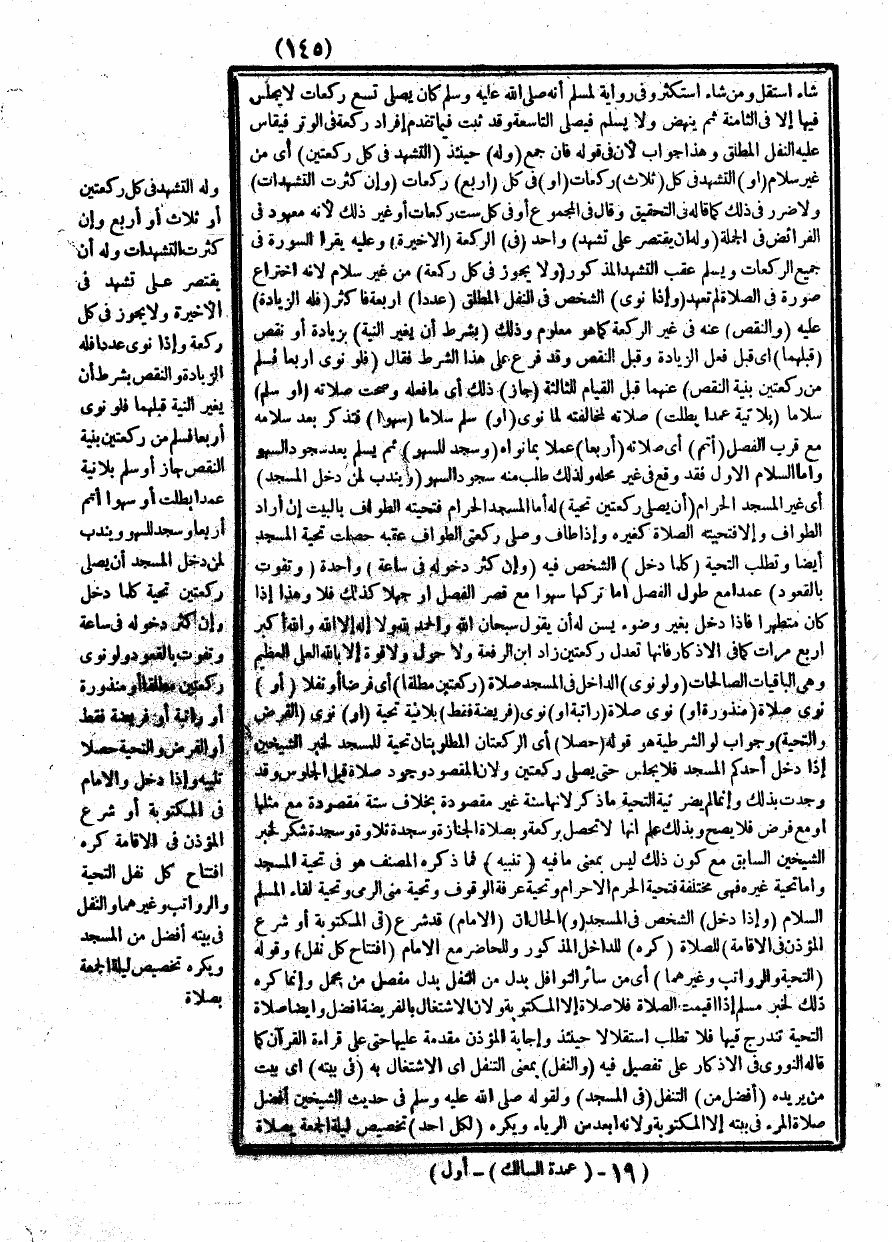 (١٤٥)
شاء استقل ومن شاء استكثر وفى رواية لمسلم أنه صلى الله عليه وسلم كان يصلى تسع ركعات لا يجلس
فيها إلا فى الثامنة ثم ينهض ولا يسلم فيصلى التاسعة وقد ثبت فيما تقدم إفراد ركعة فى الوتر فيقاس
عليه النفل المطلق وهذا جواب لأن فى قوله فان جمع (وله) حينئذ (التشهد فى كل ركعتين) أى من
غير سلام (او) التشهد فى كل (ثلاث) ركعات (او) فى كل (اربع) ركعات (وإن كثرت التشهدات)
ولا ضرر فى ذلك كما قاله فى التحقيق وقال فى المجموع أو فى كل ست ركعات أو غير ذلك لأنه معهود فى
الفرائض فى الجملة (وله ان يقتصر على تشهد) واحد (فى) الركعة (الاخيرة) وعليه يقرا السورة فى
جميع الركعات ويسلم عقب التشهد المذكور (ولا يجوز فى كل ركعة) من غير سلام لانه اختراع
صورة فى الصلاة لم تعهد (وإذا نوى) الشخص فى النفل المطلق (عددا) اربعة فاكثر (فله الزيادة)
عليه (والنقص) عنه فى غير الركعة كما هو معلوم وذلك (بشرط أن يغير النية) بزيادة أو نقص
(قبلهما) اى قبل فعل الزيادة وقبل النقص وقد فرع على هذا الشرط فقال (فلو نوى اربعا فسلم
من ركعتين بنية النقص) عنهما قبل القيام للثالثة (جاز) ذلك أى ما فعله وصحت صلاته (او سلم)
سلاما (بلا نية عمدا بطلت) صلاته لمخالفته لما نوى (او) سلم سلاما (سهوا) فتذكر بعد سلامه
مع قرب الفصل (أتم) أى صلاته (أربعا) عملا بما نواه (وسجد للسهو) ثم يسلم بعد سجود السهو
واما السلام الاول فقد وقع فى غير محله ولذلك طلب منه سجود السهو (ويندب لمن دخل المسجد)
أى غير المسجد الحرام (أن يصلى ركعتين تحية) له أما المسجد الحرام فتحيته الطواف بالبيت إن أراد
الطواف وإلا فتحيته الصلاة كغيره وإذا طاف وصلى ركعتى الطواف عقبه حصلت تحية المسجد
أيضا وتطلب التحية (كلما دخل) الشخص فيه (وإن كثر دخوله فى ساعة) واحدة (وتفوت
بالقعود) عمدا مع طول الفصل اما تركها سهوا مع قصر الفصل او جهلا كذلك فلا وهذا إذا
كان متطهرا فاذا دخل بغير وضوء يسن له أن يقول سبحان الله والحمد لله ولا إله إلا الله والله أكبر
اربع مرات كما فى الاذكار فانها تعدل ركعتين زاد ابن الرفعة ولا حول ولا قوة إلا بالله العلى العظيم
وهى الباقيات الصالحات (ولو نوى) الداخل فى المسجد صلاة (ركعتين مطلقا) أى فرضا أو نفلا (أو)
نوى صلاة (منذورة او) نوى صلاة (راتبة او) نوى (فريضة فقط) بلا نية تحية (او) نوى (الفرض
والتحية) وجواب لو الشرطية هو قوله (حصلا) أى الركعتان المطلوبتان تحية للمسجد لخبر الشيخين
إذا دخل أحدكم المسجد فلا يجلس حتى يصلى ركعتين ولان المقصود وجود صلاة قبل الجلوس وقد
وجدت بذلك وإنما لم يضر نية التحية ما ذكر لانها سنة غير مقصودة بخلاف سنة مقصودة مع مثلها
او مع فرض فلا يصح وبذلك علم انها لا تحصل بركعة وبصلاة الجنازة وسجدة تلاوة وسجدة شكر لخبر
الشيخين السابق مع كون ذلك ليس بمعنى ما فيه (تنبيه) فما ذكره المصنف هو فى تحية المسجد
واما تحية غيره فهى مختلفة فتحية الحرم الاحرام وتحية عرفة الوقوف وتحية منى الرمى وتحية لقاء المسلم
السلام (وإذا دخل) الشخص فى المسجد (و) الحال ان (الامام) قد شرع (فى المكتوبة أو شرع
المؤذن فى الاقامة) للصلاة (كره) للداخل المذكور وللحاضر مع الامام (افتتاح كل نفل) وقوله
(التحية والرواتب وغيرهما) أى من سائر النوافل بدل من النفل بدل مفصل من مجمل وإنما كره
ذلك لخبر مسلم إذا اقيمت الصلاة فلا صلاة إلا المكتوبة ولان الاشتغال بالفريضة افضل وايضا صلاة
التحية تندرج فيها فلا تطلب استقلالا حينئذ وإجابة المؤذن مقدمة عليها حتى على قراءة القرآن كما
قاله النووى فى الاذكار على تفصيل فيه (والنفل) بمعنى التنفل اى الاشتغال به (فى بيته) اى بيت
من يريده (أفضل من) التنفل (فى المسجد) ولقوله صلى الله عليه وسلم فى حديث الشيخين أفضل
صلاة المرء فى بيته إلا المكتوبة ولانه ابعد من الرياء ويكره (لكل احد) تخصيص ليلة الجمعة بصلاة
وله التشهد فى كل ركعتين
أو ثلاث أو أربع وإن
كثرت التشهدات وله أن
يقتصر على تشهد فى
الأخيرة ولا يجوز فى كل
ركعة وإذا نوى عددا فله
الزيادة والنقص بشرط أن
يغير النية قبلهما فلو نوى
أربعا فسلم من ركعتين بنية
النقص جاز أو سلم بلا نية
عمدا بطلت أو سهوا أتم
أربعا وسجد للسهو ويندب
لمن دخل المسجد أن يصلى
ركعتين تحية كلما دخل
وإن كثر دخوله فى ساعة
وتفوت بالقعود ولو نوى
ركعتين مطلقا أو منذورة
أو راتبة أو فريضة فقط
أو الفرض والتحية حصلا
تنبيه وإذا دخل والامام
فى المكتوبة أو شرع
المؤذن فى الاقامة كره
افتتاح كل نفل التحية
والرواتب وغيرهما والنفل
فى بيته أفضل من المسجد
ويكره تخصيص ليلة الجمعة
بصلاة
(١٩ - (عمدة السالك) - أول)